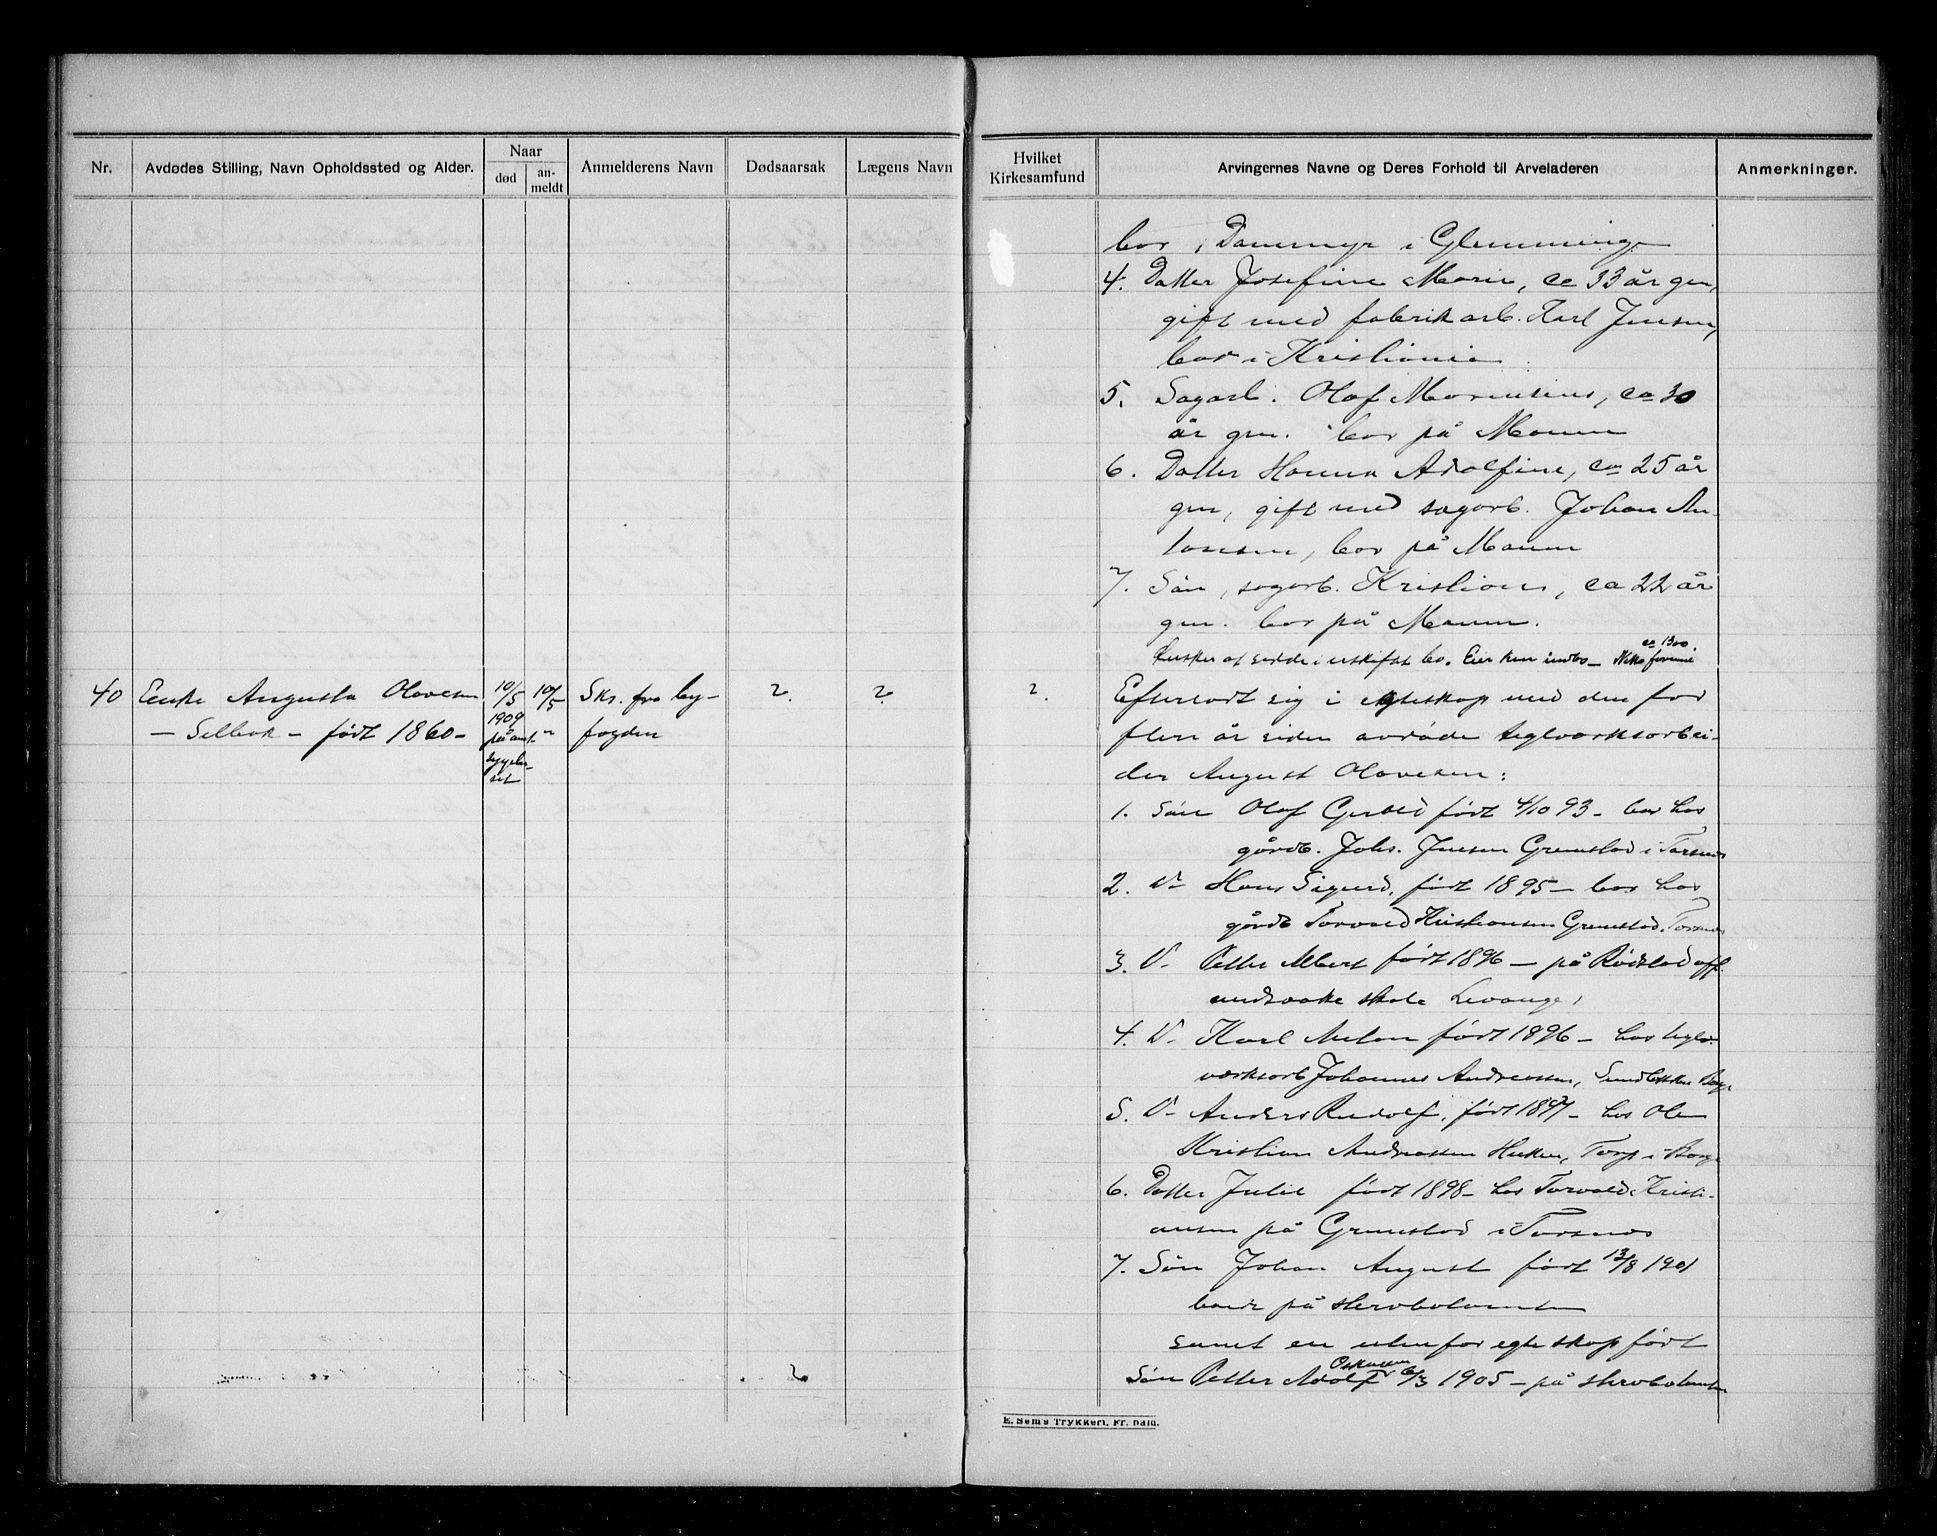 Nr.
Avdødes Stilling, Navn Opholdssted og Alder.
Naar
død
an-
meldt
Anmelderens Navn
Dødsaarsak
Lægens Navn
40 Enke Augusta Olavesen
— Selbak — født 1860 —
10/5
1909
på amt-
sygehu-
set
10/5
"
Skr. fra by-
fogden
?
?
Hvilket
Kirkesamfund
Arvingernes Navne og Deres Forhold til Arveladeren
Anmerkninger.
bor i Dammyr i Glemminge
4. Datter Josefine Marie, ca 33 år gm,
gift med fabrikarb. Karl Jensen,
bor i Kristiania
5. Sagarb. Olaf Morensius, ca 30
år gm. bor på Moum
6. Datter Hanna Adolfine, ca 25 år
gm, gift med sagarb. Johan An-
tonsen, bor på Moum
7. Søn, sagarb. Kristian, ca 22 år
gm. bor på Moum.
ca 1300.
Ønsker at sidde i uskiftet bo. Eier kun indbo — Netto formue
?
Efterlodt sig i egteskap med den for
flere år siden avdøde teglverksarbei-
der August Olavesen:
1. Søn Olaf Gerhard født 4/10 93 — bor hos
gårdb. Johs. Jensen Grimstad i Torsnes
2. D— Hans Sigurd, født 1895 — bor hos
gårdb Torvald Kristiansen Grimstad Torsnes
3. D— Petter Albert født 1896 — på Rødstad off.
åndsvake skole Levanger
4. D— Karl Anton født 1896 — hos tegl-
verksarb Johannes Andreassen, Borge
5. D— Anders Rudolf, født 1897 — hos Ole
Kristian Andreassen Torp i Borge
6. Datter Julie født 1898 — hos Torvald Kristi-
ansen på Grimstad i Torsnes
7. Søn Johan August født 13/8 1901
samt en utenfor egteskap født
Oskar
Søn Petter Adolf 6/3 1905 — på
E. Sem's Trykkeri, Fr.hald.